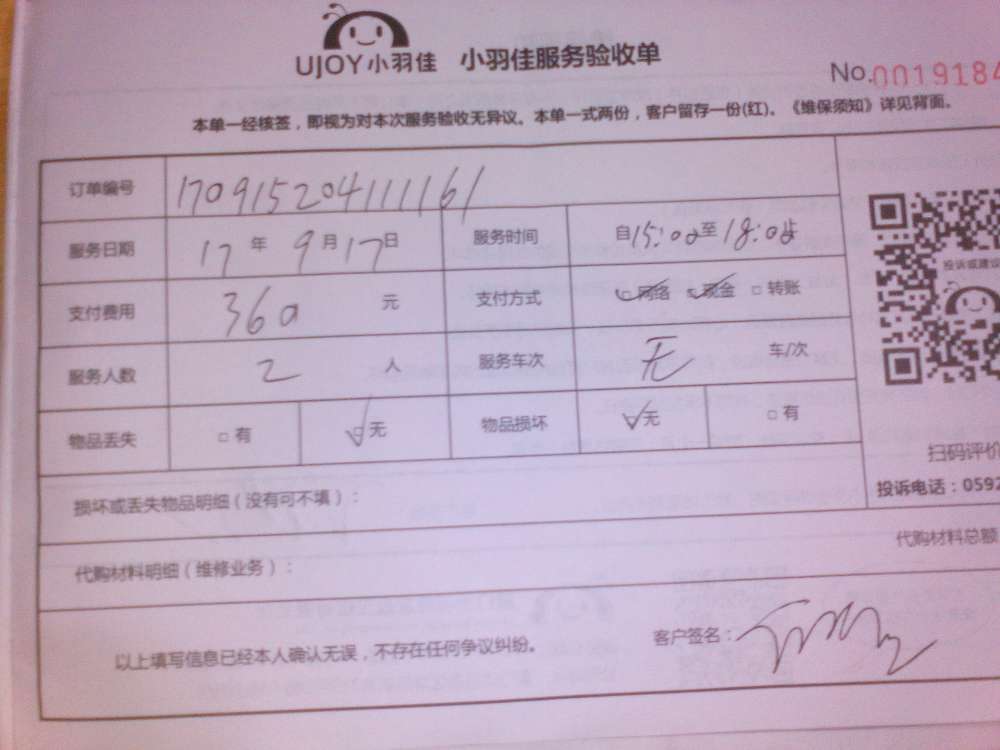 UJOY小羽佳 小羽佳服务验收单
No.0019184
本单一经核签，即视为对本次服务验收无异议。本单一式两份，客户留存一份(红)。《维保须知》详见背面。
订单编号 170915204111161
服务日期 17年9月17日 服务时间 自15:00至18:00止
支付费用 360元 支付方式 网络 现金 □转账
投诉或建议
服务人数 2人 服务车次 无 车/次
物品丢失 □有 □无 物品损坏 □无 □有
扫码评价
投诉电话：0592
损坏或丢失物品明细（没有可不填）：
代购材料明细（维修业务）： 代购材料总额
以上填写信息已经本人确认无误，不存在任何争议纠纷。 客户签名：